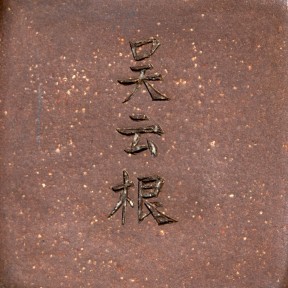 吴云根